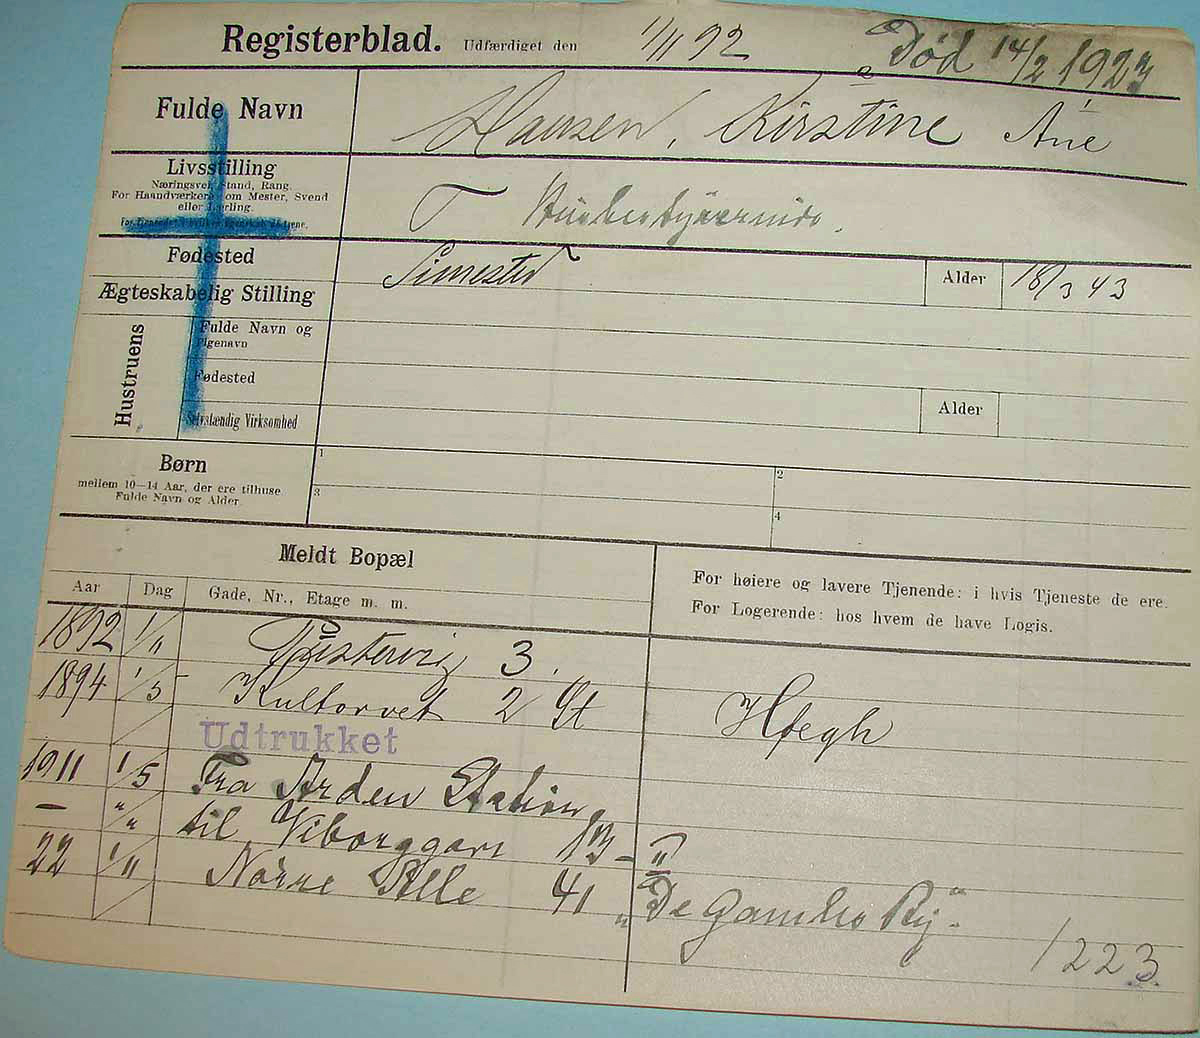 Registerblad. Udfærdiget den 1/11 92 Død 14/2 1923
Fulde Navn Hansen, Kirstine Ane
Livsstilling
Næringsvei, Stand, Rang.
For Haandværkere om Mester, Svend
eller Lærling.
Fødested Simested Alder 18/3 43
Ægteskabelig Stilling
Hustruens
Fulde Navn og
Pigenavn
Fødested
Selvstændig Virksomhed Alder
Børn
mellem 10—14 Aar, der ere tilhuse
Fulde Navn og Alder.
1
2
3
4
Meldt Bopæl
For høiere og lavere Tjenende: i hvis Tjeneste de ere.
For Logerende: hos hvem de have Logis.
Aar Dag Gade, Nr., Etage m. m.
1892 1/11 3.
1894 1/5 Kultorvet 2 St Høegh
Udtrukket
1911 1/5 Fra Arden Station
— " / " til Viborggade 13 -
22 1/11 Nørre Alle 41 "De Gamles By."
1223